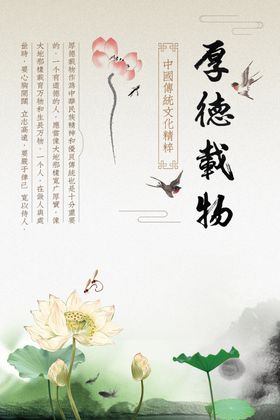 厚德載物
中國傳統文化精粹
厚德載物作為中華民族精神和優良傳統也是十分重要
的，一个有道德的人，應當像大地那樣寬广厚實，像
大地那樣載育万物和生長万物。一个人，在與人與處
世時，要心胸開闊，立志高遠，要嚴于律己，寬以待人。